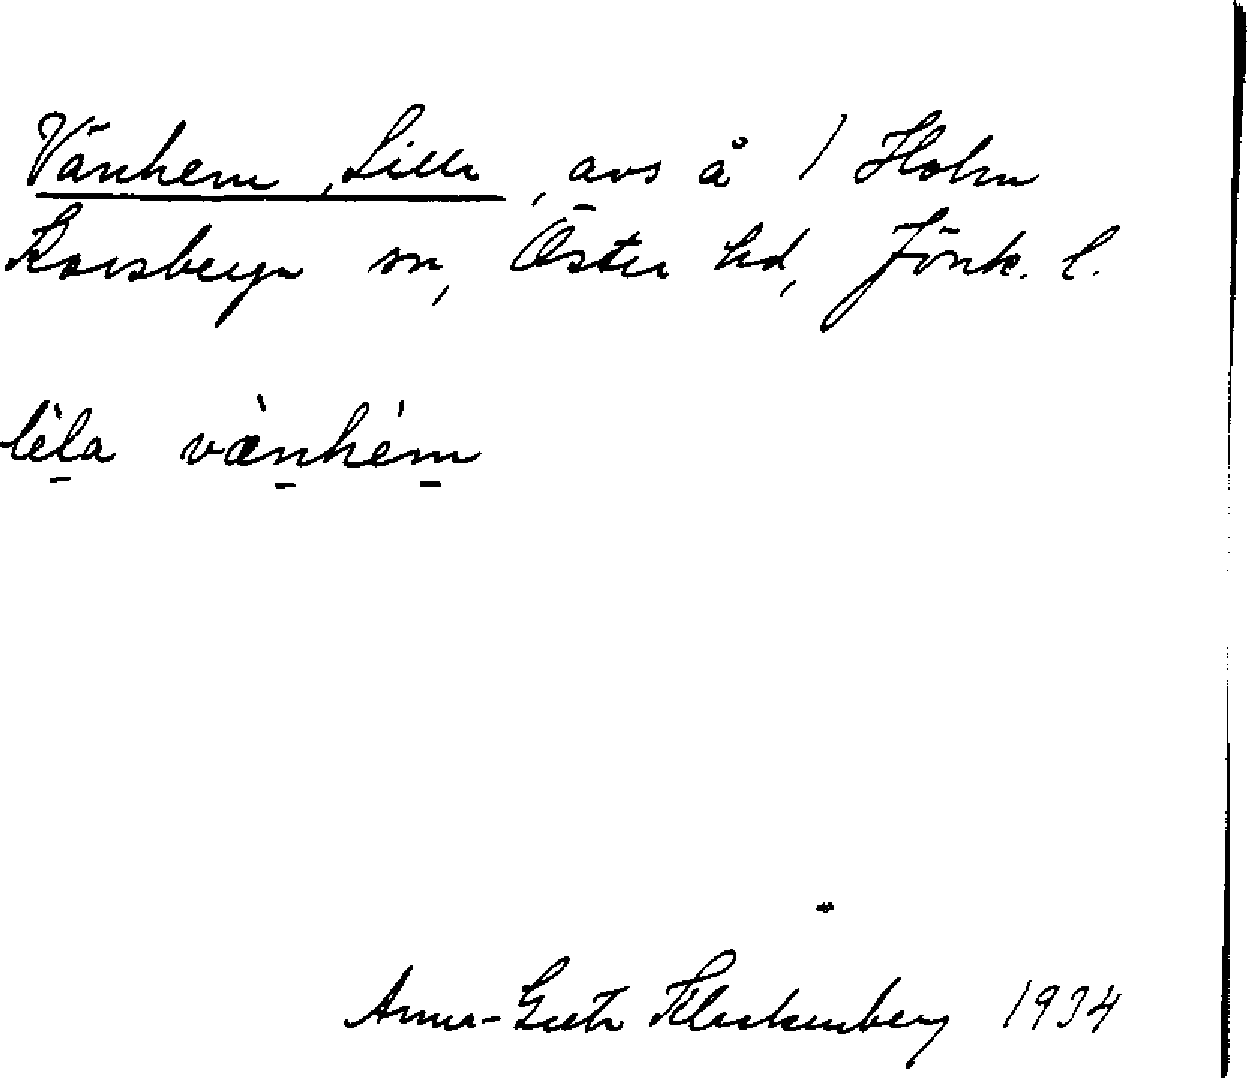 Vänhem, Lilla, avs å 1 Holm
Korsberga sn, Östra hd, Jönk. l.
lèla vànhém
Anna-Greta Klockenberg 1934